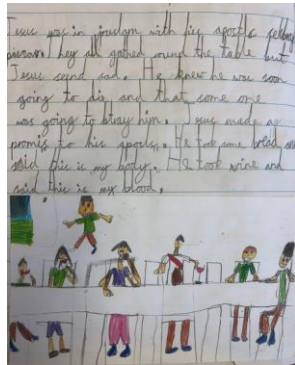 Jesus was in jruslam with his apostls
passover. They all gatherd round the table but
Jesus semd sad. He knew he was soon
going to die and that some one
was going to btray him. Jesus made a
promis to his apostls. He took some bread and
said this is my body. He took wine and
said this is my blood.